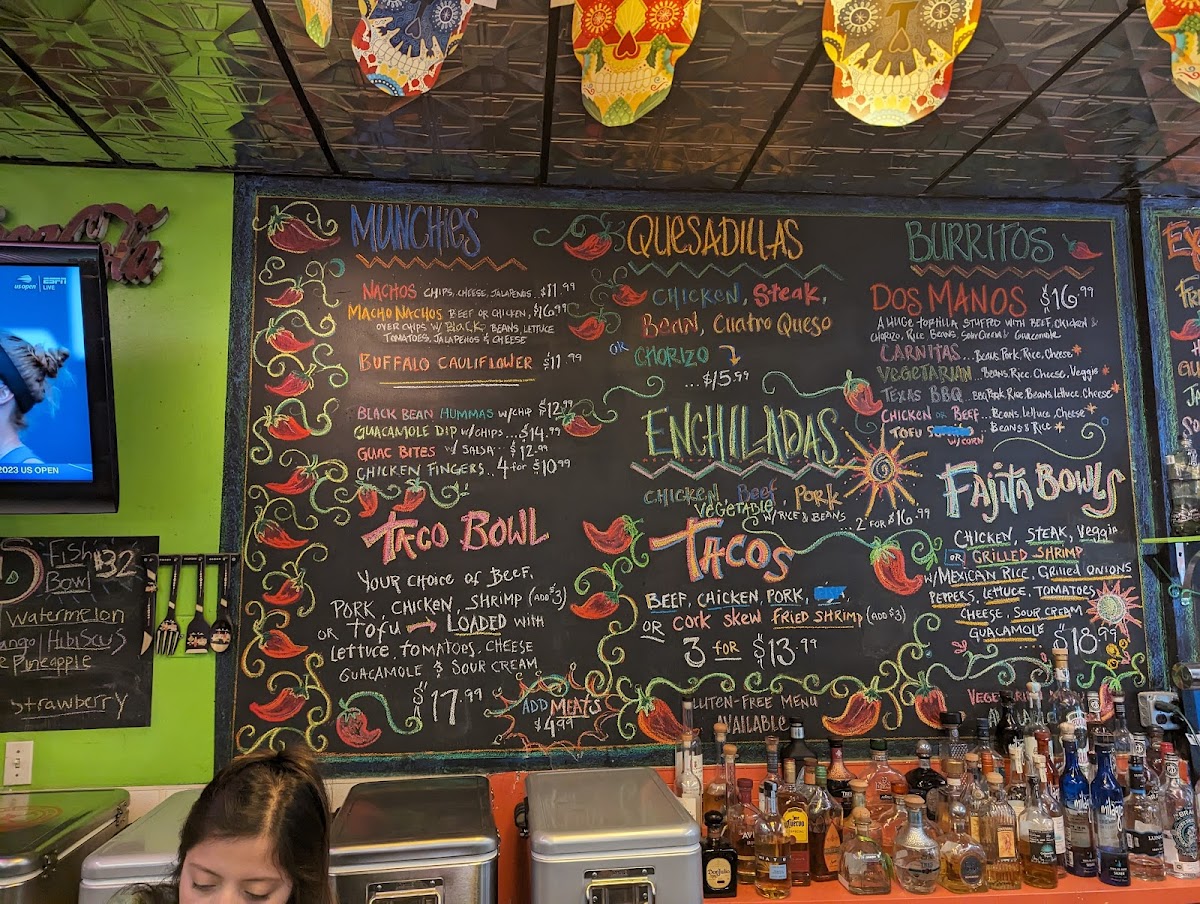 us open ESPN
LIVE
2023 US OPEN
FISH $32
BOWL
watermelon
Hibiscus
Pineapple
Strawberry
MUNCHIES
NACHOS CHIPS, CHEESE, JALAPENOS $11.99
MACHO NACHOS BEEF OR CHICKEN, $16.99
OVER CHIPS W/ BLACK BEANS, LETTUCE
TOMATOES, JALAPEÑOS & CHEESE
BUFFALO CAULIFLOWER $11.99
BLACK BEAN HUMMAS w/CHIP $12.99
GUACAMOLE DIP w/CHIPS...$14.99
GUAC BITES w/ SALSA.. $12.99
CHICKEN FINGERS.. 4 for $10.99
TACO BOWL
YOUR CHOICE OF BEEF,
PORK, CHICKEN, SHRIMP (ADD $3)
OR TOFU → LOADED WITH
LETTUCE, TOMATOES, CHEESE
GUACAMOLE & SOUR CREAM
$17.99
ADD MEATS
$4.99
QUESADILLAS
CHICKEN, Steak,
Bean, Cuatro Queso
OR CHORIZO
...$15.99
ENCHILADAS
CHICKEN Beef Pork
VEGETABLE
W/RICE & BEANS
...2 FOR $16.99
TACOS
BEEF, CHICKEN PORK,
OR CORK SKEW FRIED SHRIMP (ADD $3)
3 FOR $13.99
GLUTEN-FREE MENU
AVAILABLE
BURRITOS
DOS MANOS $16.99
A HUGE TORTILLA STUFFED WITH BEEF, CHICKEN &
CHORIZO, RICE, BEANS, SOUR CREAM & GUACAMOLE
CARNITAS... BEANS, PORK, RICE, CHEESE
VEGETARIAN... BEANS, RICE, CHEESE, VEGGIE
TEXAS BBQ... BBQ PORK, RICE, BEANS, LETTUCE, CHEESE
CHICKEN OR BEEF... BEANS, LETTUCE, CHEESE
TOFU W/CORN ...BEANS & RICE
FAJITA BOWLS
CHICKEN, STEAK, VEGGIE
OR GRILLED SHRIMP
W/MEXICAN RICE, GRILLED ONIONS
PEPPERS, LETTUCE, TOMATOES
CHEESE, SOUR CREAM
GUACAMOLE $18.99
Cuervo
Don Julio
milagro